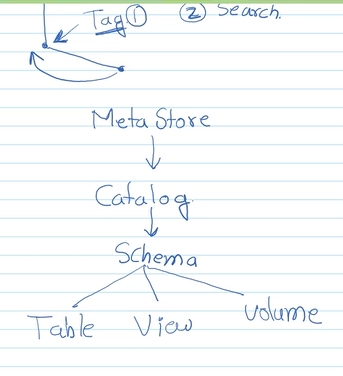 Tag ① ② Search.
Meta Store
Catalog
Schema
Table View Volume